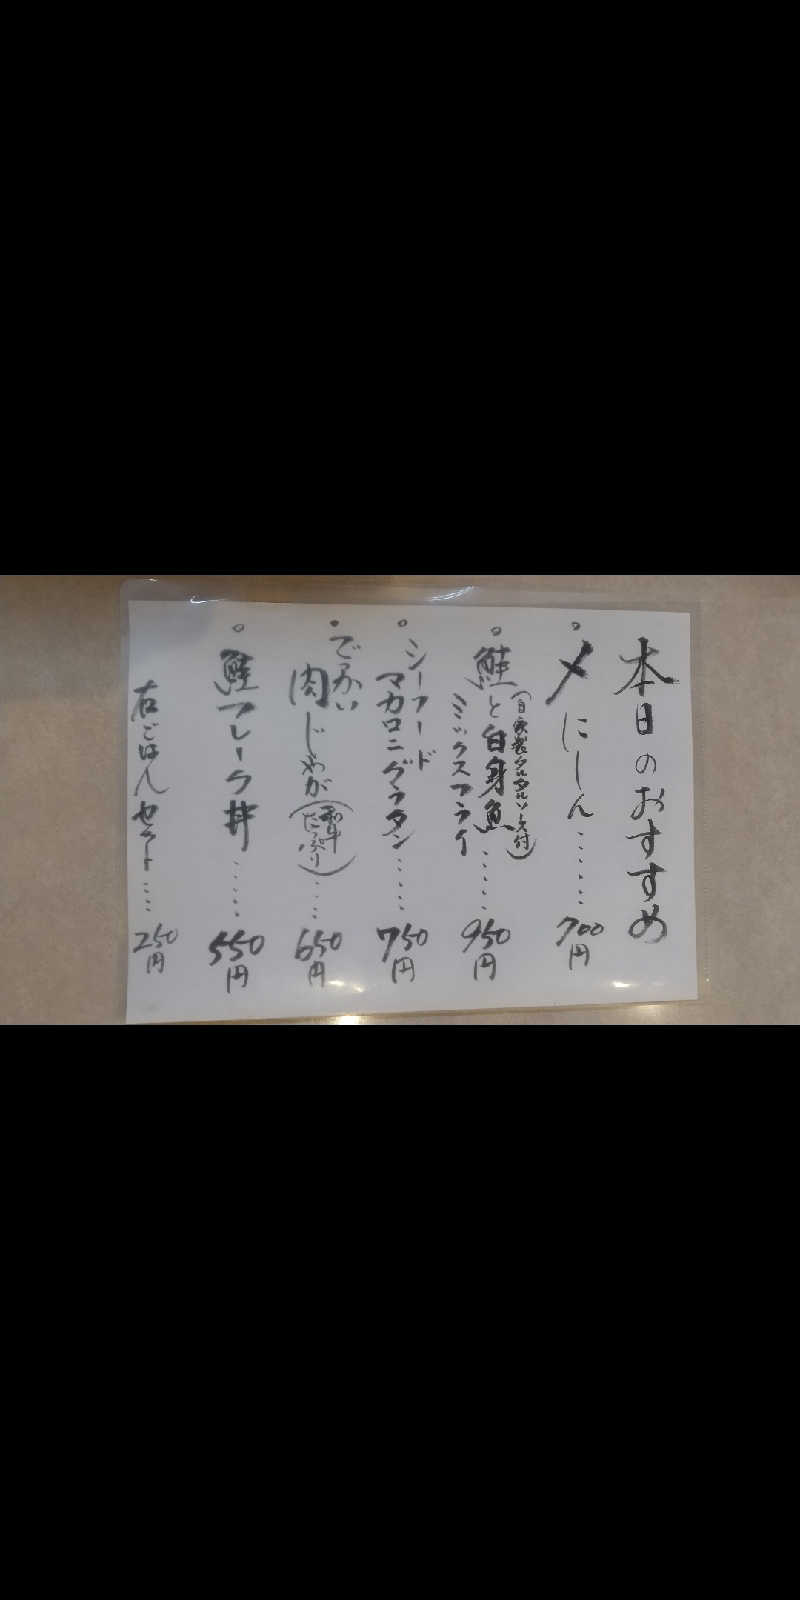 本日のおすすめ
〆にしん‥‥‥700円
鮭と白身魚
ミックスフライ‥‥‥950円
(自家製タルタルソース付)
シーフード
マカロニグラタン‥‥‥750円
でっかい
肉じゃが(和牛たっぷり)‥‥650円
鮭フレーク丼‥‥‥550円
右ごはんセット‥‥250円